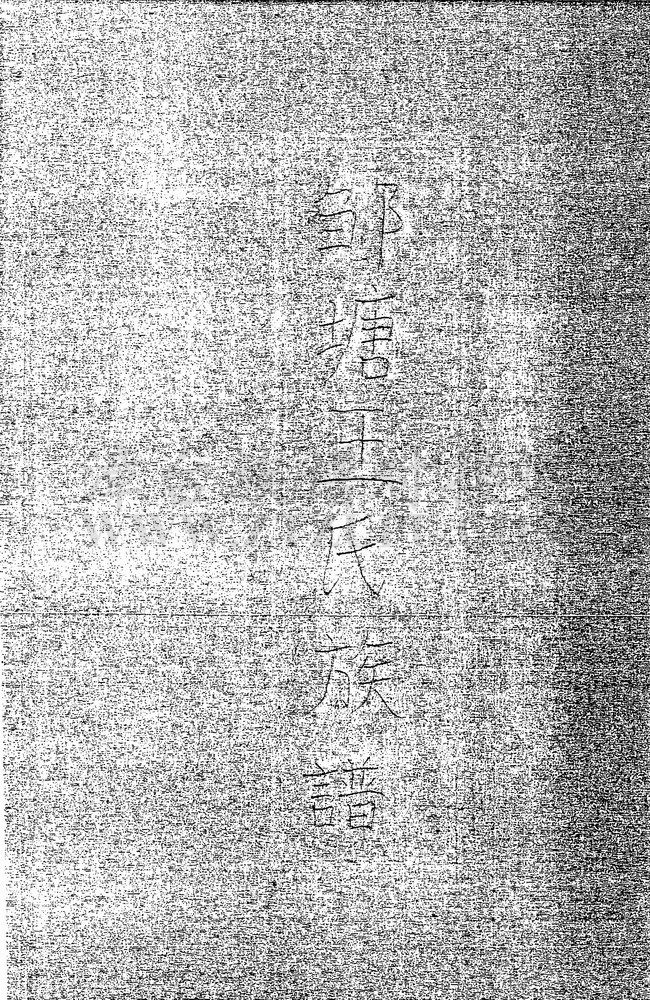 邹塘王氏族譜